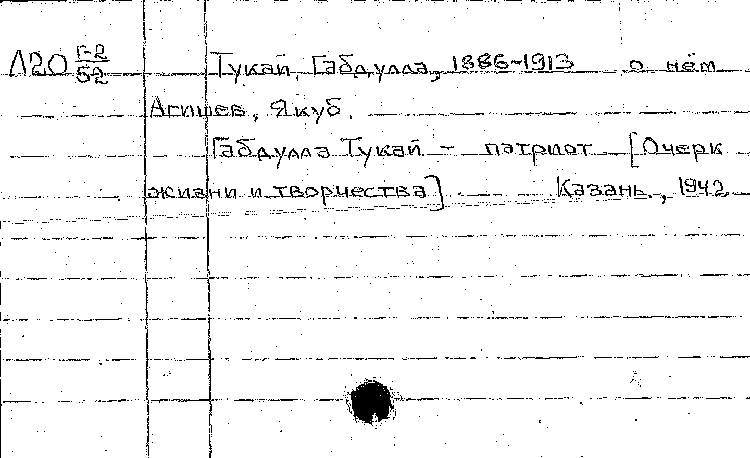 Л20 Г-2/52 Тукай, Габдулла, 1886-1913 о нём
Агишев, Якуб.
Габдулла Тукай - патриот [Очерк
жизни и творчества] Казань, 1942